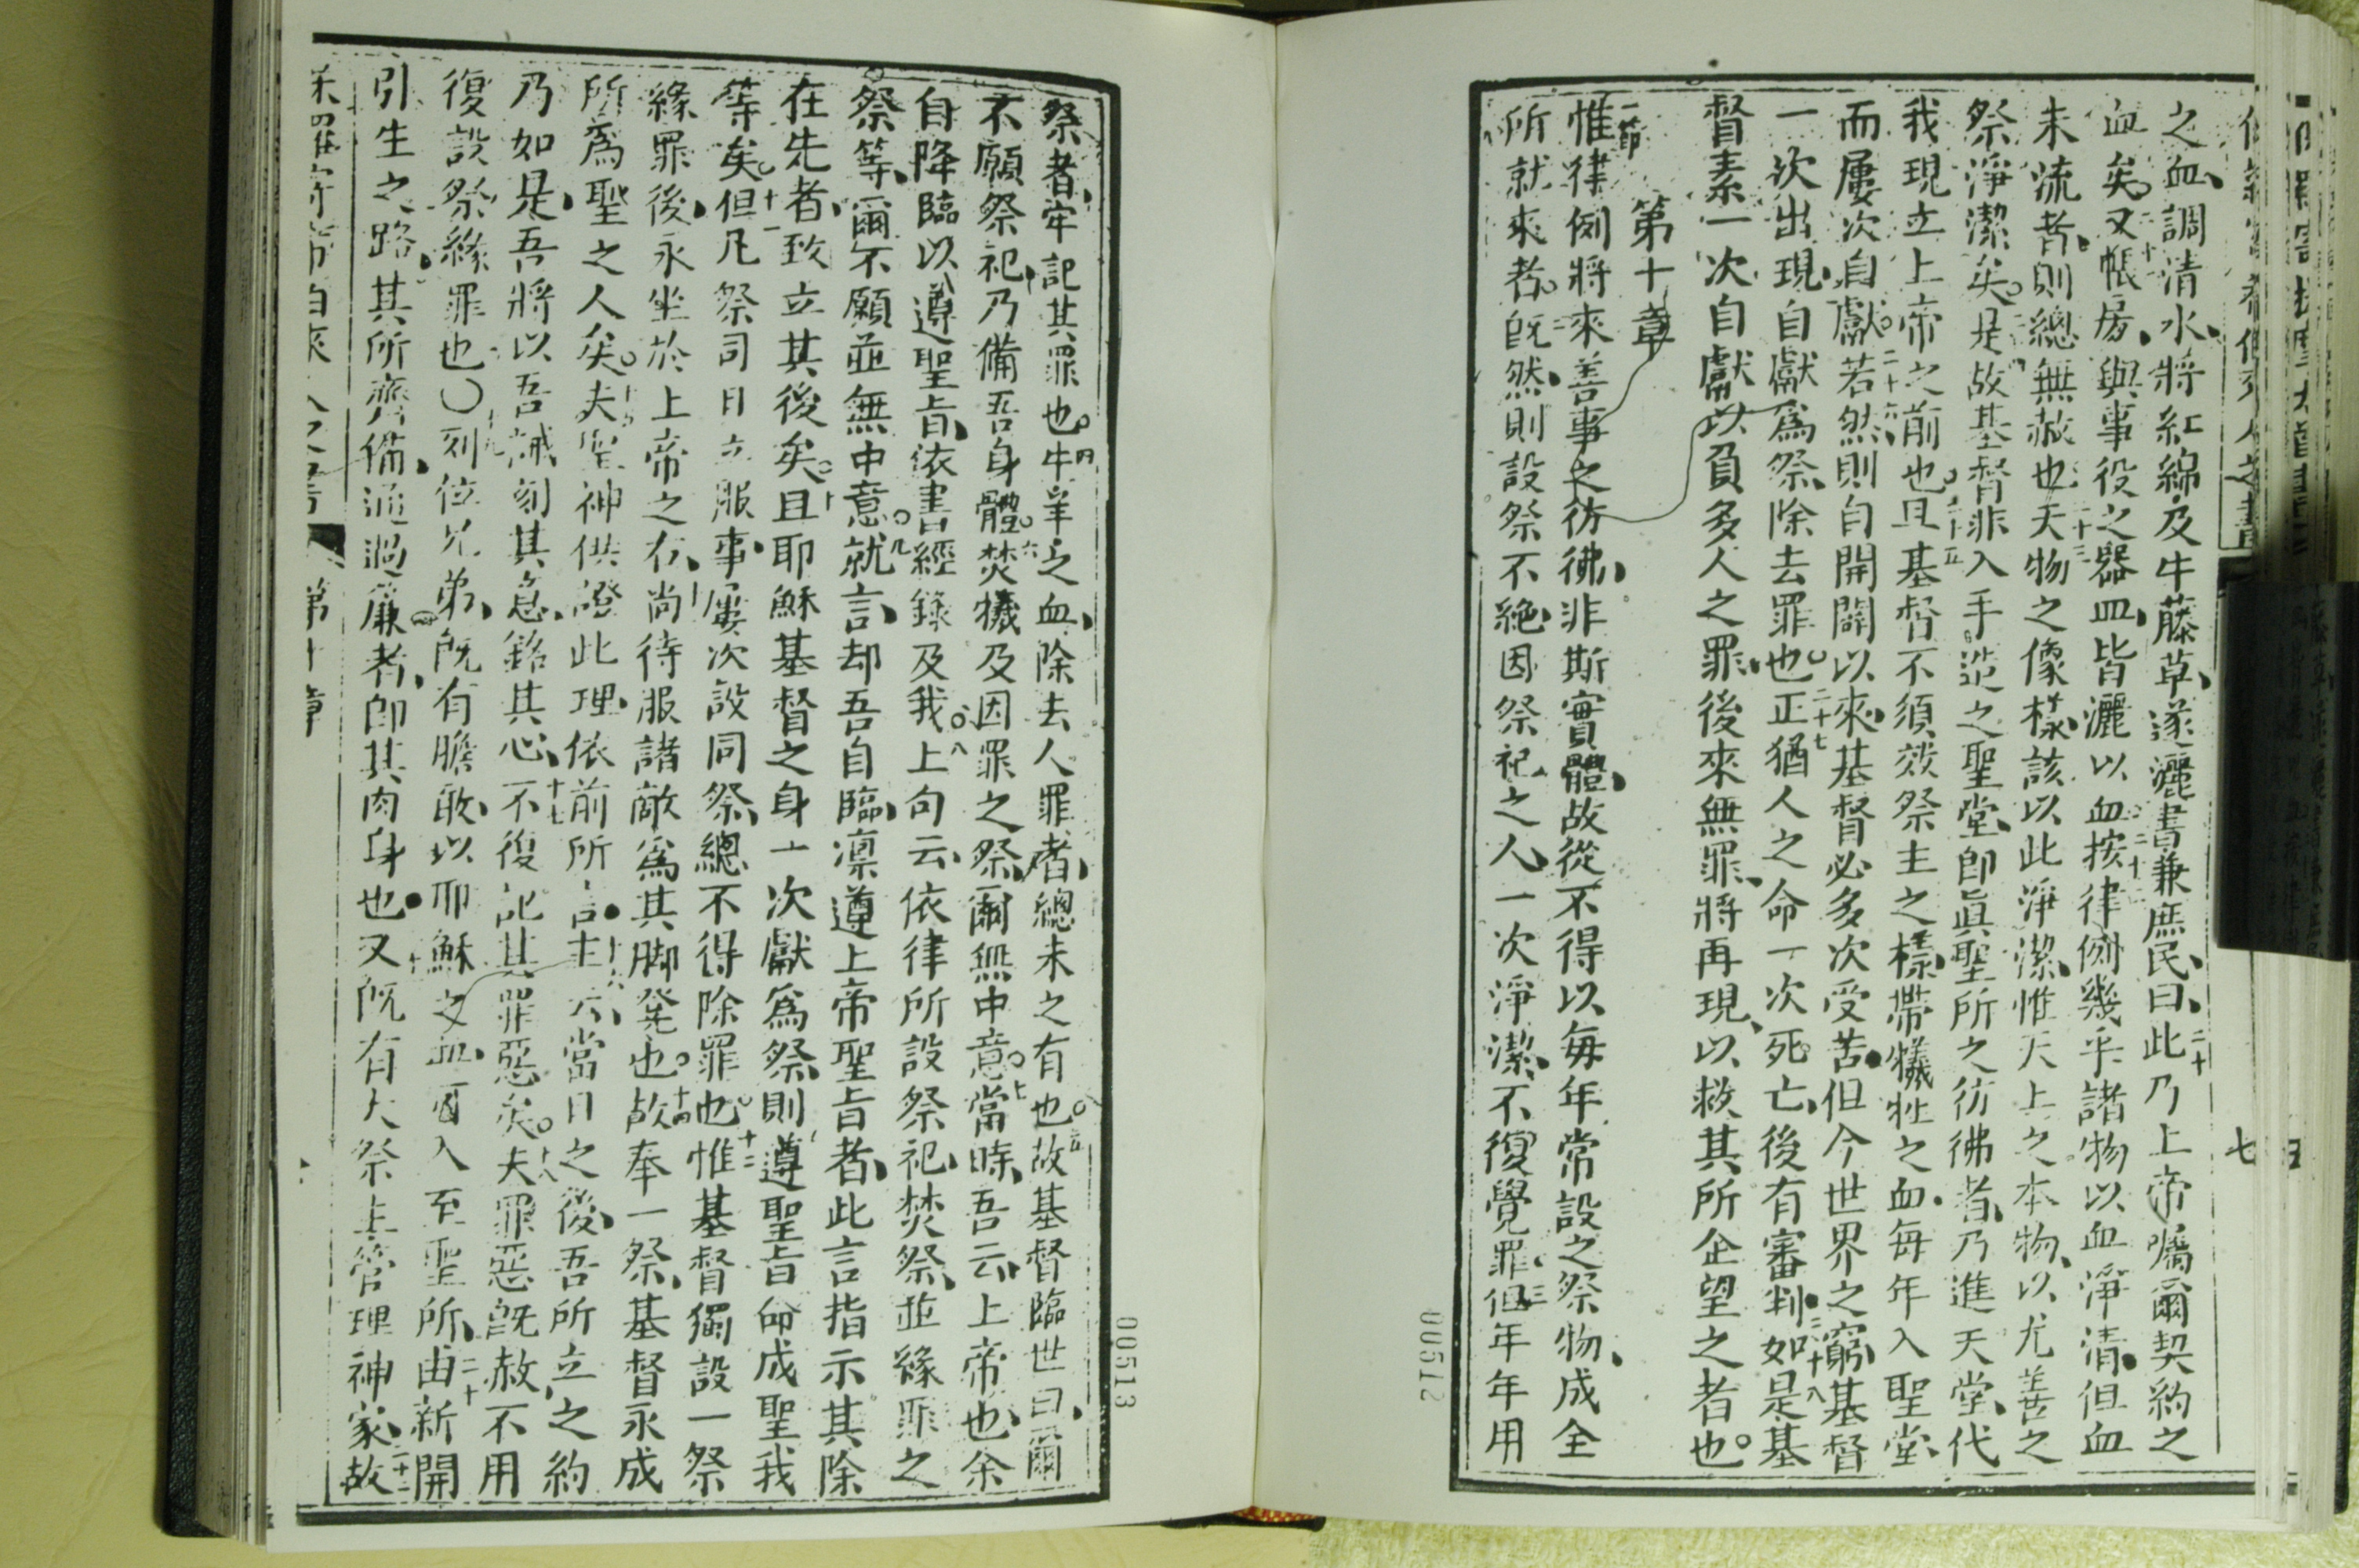 之血調清水、將紅綿、及牛藤草、遂灑書兼庶民、曰、二十此乃上帝囑爾契約之
血矣。二十一又帳房、與事役之器皿、皆灑以血。二十二按律例幾乎諸物以血淨清、但血
未流者、則總無赦也。二十三天物之像樣、該以此淨潔、惟天上之本物、以尤善之
祭淨潔矣。二十四是故基督非入手造之聖堂、即眞聖所之彷彿者、乃進天堂、代
我現立上帝之前也。二十五且基督不須效祭主之樣、帶犧牲之血、每年入聖堂、
而屢次自獻。二十六若然、則自開闢以來、基督必多次受苦、但今世界之窮、基督
一次出現、自獻爲祭、除去罪也。二十七正猶人之命一次死亡、後有審判、二十八如是基
督素一次自獻以負多人之罪、後來無罪、將再現、以救其所企望之者也。
第十章
一節惟律例將來善事之彷彿、非斯實體、故從不得以每年常設之祭物、成全
所就來者。二旣然、則設祭不絶、因祭祀之人、一次淨潔、不復覺罪、三但年年用
00512
祭者、牢記其罪也。四牛羊之血、除去人罪者、總未之有也。五故基督臨世曰、爾
不願祭祀、乃備吾身體。六焚犧及因罪之祭、爾無中意。七當時、吾云、上帝也、余
自降臨以遵聖旨、依書經錄及我。八上句云、依律所設祭祀、焚祭、並緣罪之
祭等、爾不願並無中意。九就言、却吾自臨、凛遵上帝聖旨者、此言指示其除
在先者、致立其後矣。十且耶穌基督之身一次獻爲祭、則遵聖旨命成聖我
等矣。十一但凡祭司日立服事、屢次設同祭、總不得除罪也。十二惟基督獨設一祭
緣罪後、永坐於上帝之右、尚待服諸敵爲其脚凳也。十四故奉一祭、基督永成
所爲聖之人矣。十五夫聖神供證此理、依前所言、十六主云、當日之後、吾所立之約
乃如是、吾將以吾誡刻其意、銘其心、十七不復記其罪惡矣。十八夫罪惡旣赦、不用
復設祭緣罪也〇十九列位兄弟、旣有膽敢、以耶穌之血、可入至聖所、二十由新開
引生之路、其所齊備、通過簾者、卽其肉身也、又旣有大祭主管理神家、二十二故
第十章
00513
七